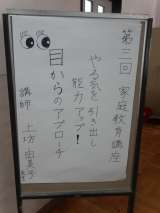 第三回 家庭教育講座
やる気を引き出し
能力アップ!
目からのアプローチ
講師 土坊 由美子